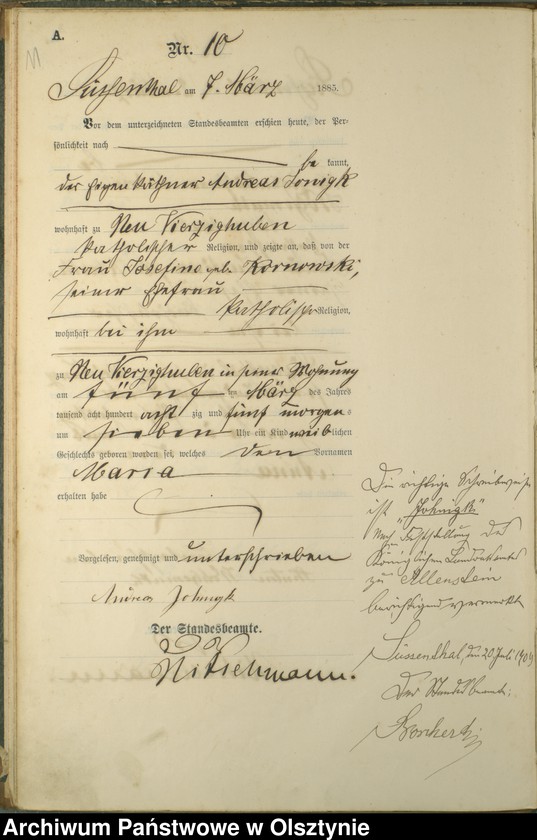 A.
11
Nr. 10
Süssenthal am 7. März 1885.
Vor dem unterzeichneten Standesbeamten erschien heute, der Per-
sönlichkeit nach
be kannt,
der Eigenkäthner Andreas Jonigk
wohnhaft zu Neu Vierzighuben
katholischer Religion, und zeigte an, daß von der
Frau Josefine geb. Kornowski,
seiner Ehefrau
katholischer Religion,
wohnhaft bei ihm
zu Neu Vierzighuben in seiner Wohnung
am fünften März des Jahres
tausend acht hundert acht zig und fünf morgens
um sieben Uhr ein Kind weiblichen
Geschlechts geboren worden sei, welches den Vornamen
Maria
erhalten habe
Vorgelesen, genehmigt und unterschrieben
Andreas Johnigk
Der Standesbeamte.
Hitschmann.
Die richtige Schreibweise
ist "Johnigk"
Nach Feststellung des
Königlichen Landratsamtes
zu Allenstein
berichtigend vermerkt
Süssenthal, den 20 Juli 1909
Der Standesbeamte:
Borchert
Archiwum Państwowe w Olsztynie